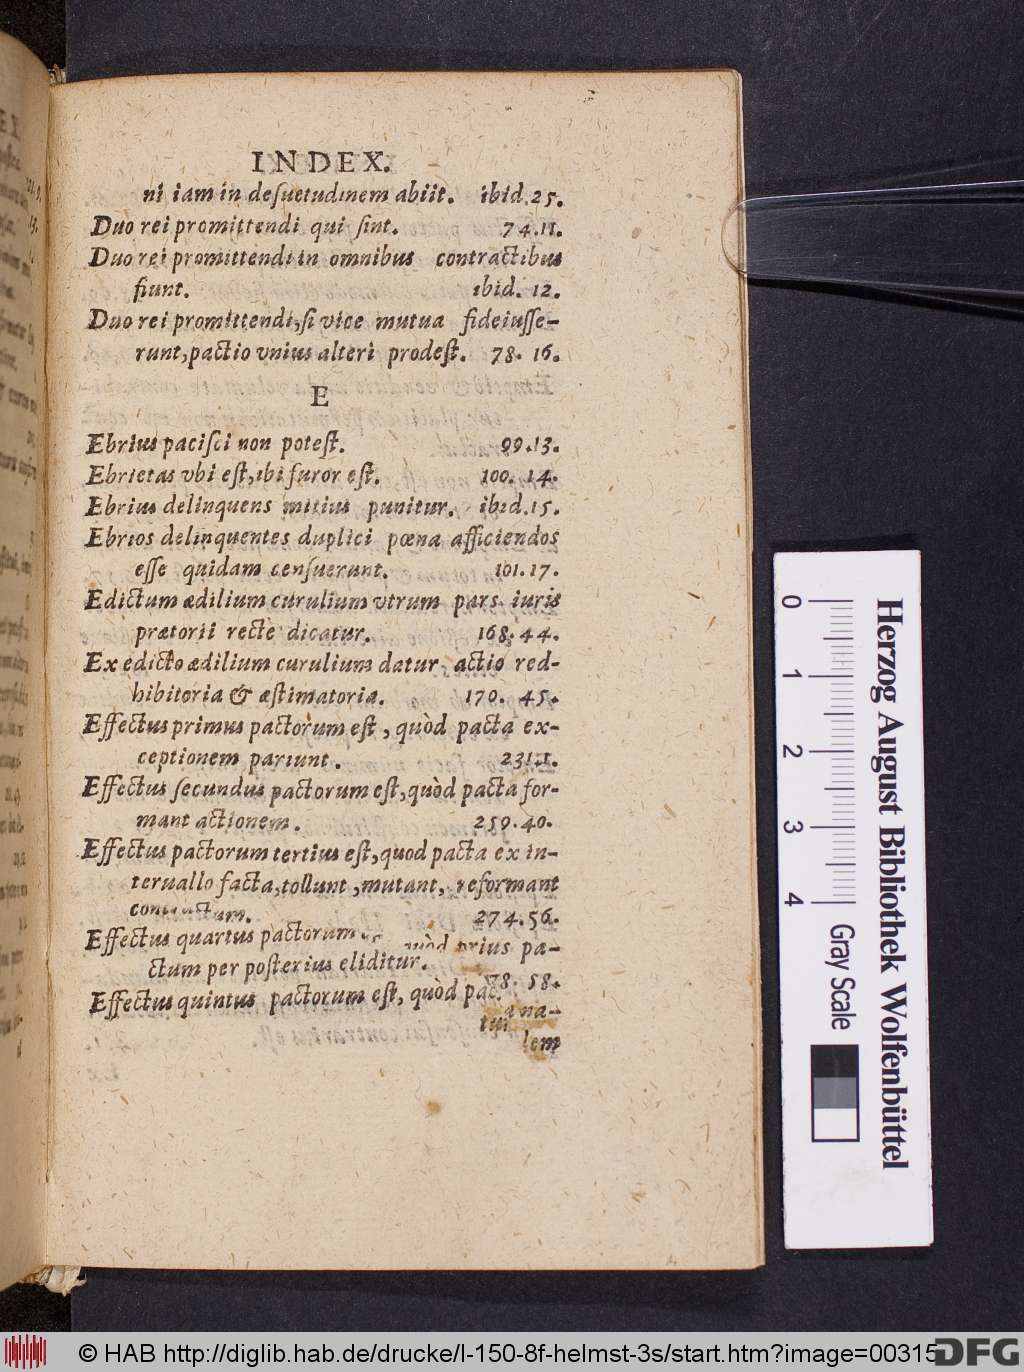 INDEX.
ni iam in deſuetudinem abiit. ibid.25.
Duo rei promittendi qui ſint. 74.11.
Duo rei promittendi in omnibus contractibus
fiunt. ibid. 12.
Duo rei promittendi,ſi vice mutua fideiuſſe-
runt,pactio vnius alteri prodeſt. 78. 16.
E
Ebrius paciſci non poteſt. 99.13.
Ebrietas vbi eſt,ibi furor eſt. 100. 14.
Ebrius delinquens mitius punitur. ibid.15.
Ebrios delinquentes duplici pœna afficiendos
eſſe quidam cenſuerunt. 101.17.
Edictum ædilium curulium vtrum pars iuris
prætorii rectè dicatur. 168.44.
Ex edicto ædilium curulium datur actio red-
hibitoria & æſtimatoria. 170. 45.
Effectus primus pactorum eſt, quòd pacta ex-
ceptionem pariunt. 231.1.
Effectus ſecundus pactorum eſt,quòd pacta for-
mant actionem. 259.40.
Effectus pactorum tertius eſt,quod pacta ex in-
teruallo facta,tollunt,mutant, reformant
contractum. 274.56.
Effectus quartus pactorum quòd prius pa-
ctum per poſterius eliditur. 78. 58.
Effectus quintus pactorum eſt, quòd pac
na-
lem
0
1
2
3
4
Herzog August Bibliothek Wolfenbüttel
Gray Scale
© HAB http://diglib.hab.de/drucke/l-150-8f-helmst-3s/start.htm?image=00315
DFG